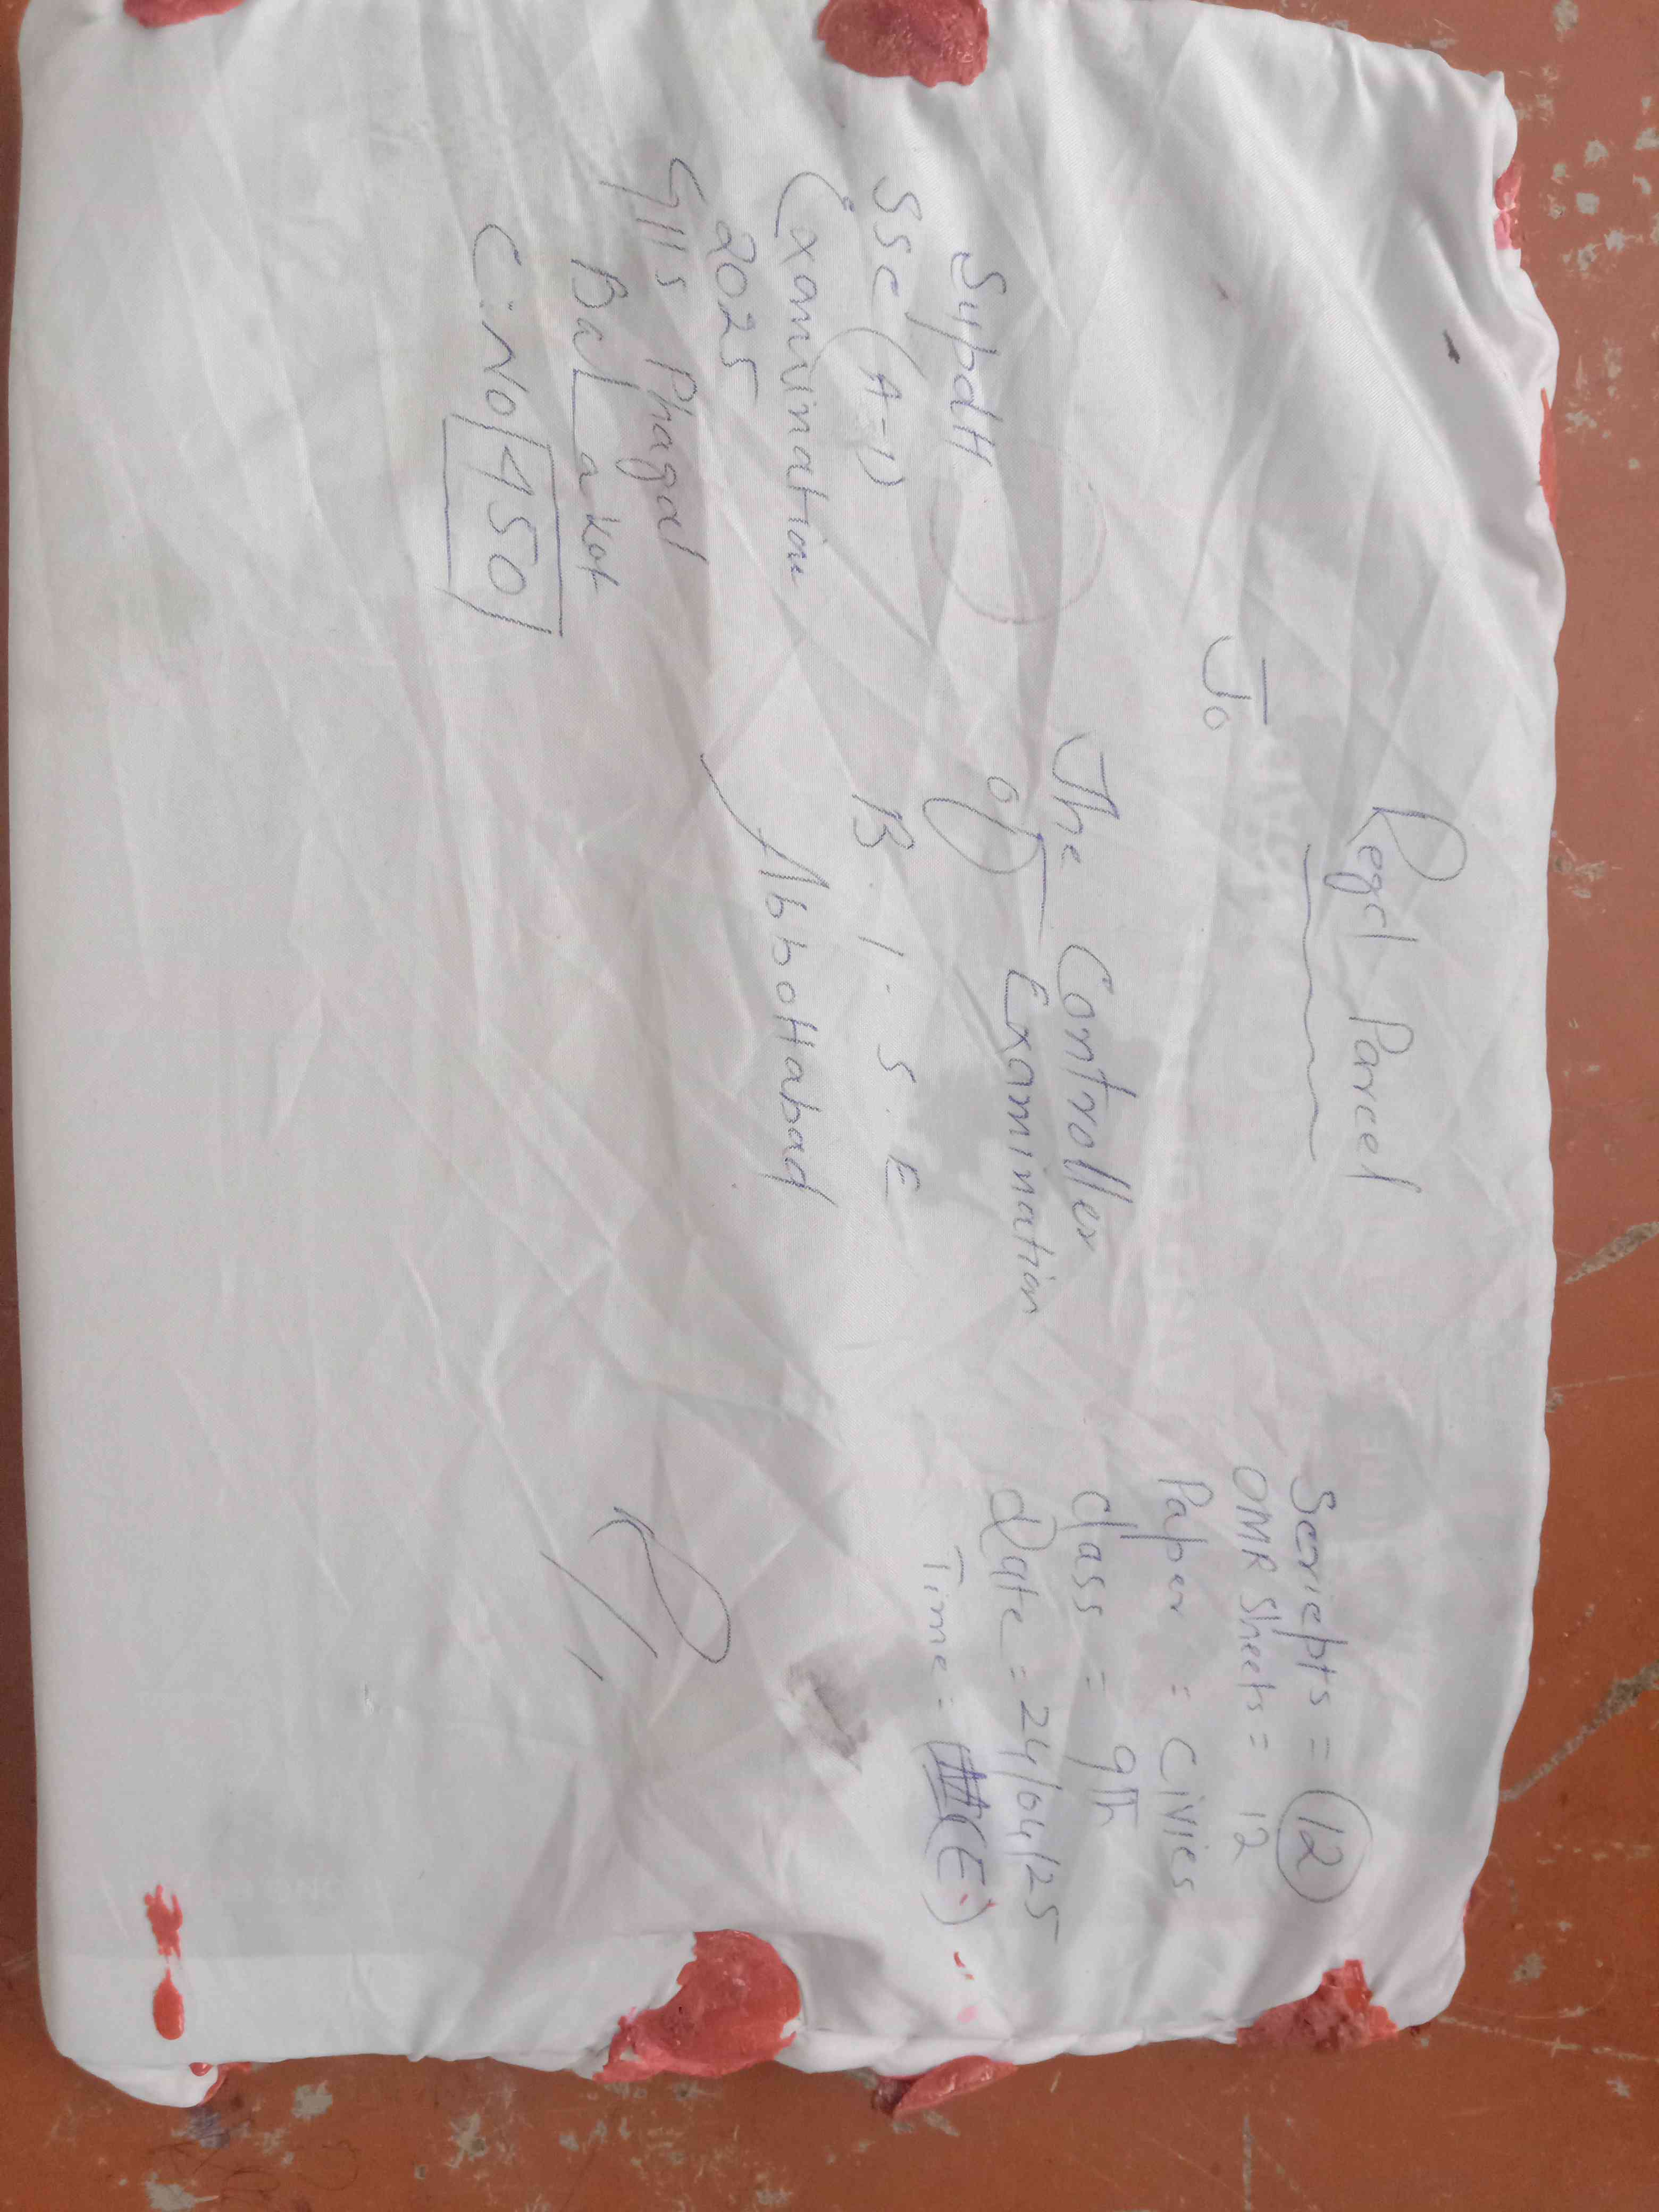 Regd Parcel
To
The Controller
of Examination
B.I.S.E
Abbottabad
Scripts = 12
OMR Sheets = 12
Paper = Civics
Class = 9th
Date = 24/04/25
Time = (E)
Supdtt
SSC (A-1)
Examination
2025
GHS Phagal
Balakot
C.No 450